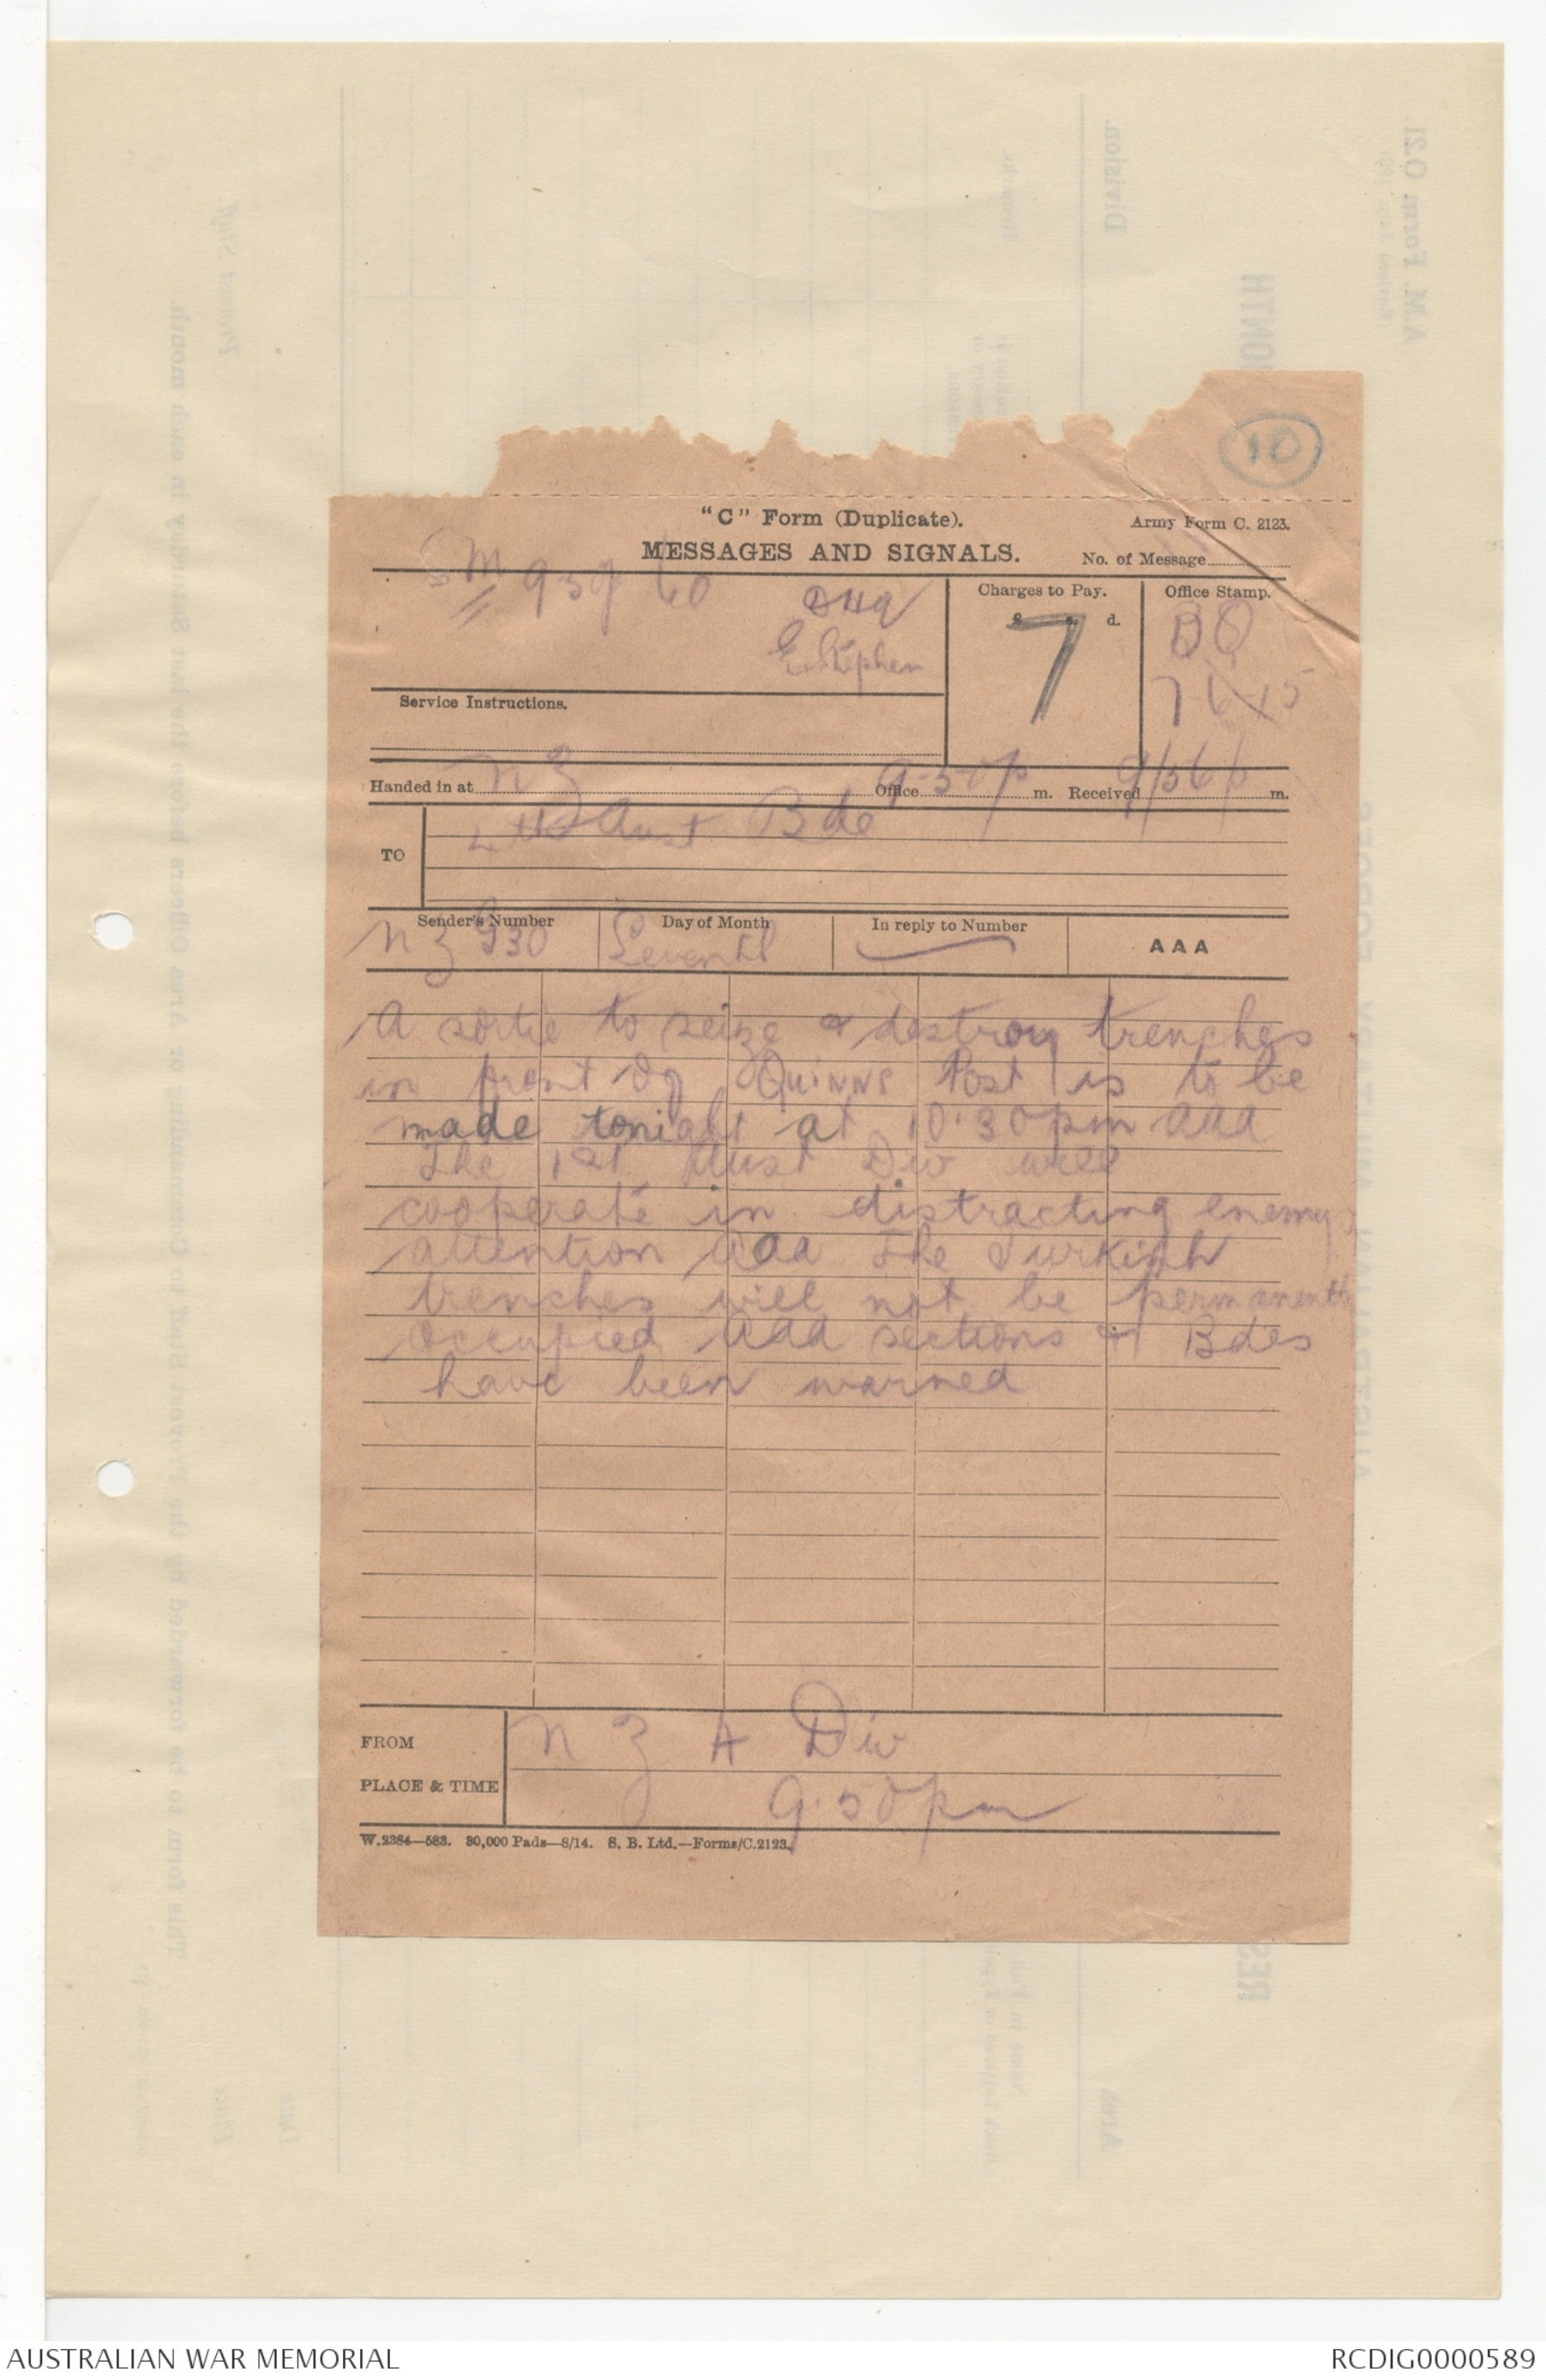 10
"C" Form (Duplicate).
Army Form C. 2123.
MESSAGES AND SIGNALS.
No. of Message
Sm 939 60 DHQ
E Stephen
Charges to Pay.
£ s. d.
7
Office Stamp.
BQ
7-6-15
Service Instructions.
Handed in at NZ Office 9.50 p m. Received 9/56 p m.
TO 4th Aust Bde
Sender's Number
Day of Month
In reply to Number
AAA
NZ G30 Seventh
A sortie to seize & destroy trenches
in front of Quinns Post is to be
made tonight at 10.30 pm aaa
The 1st Aust Div will
cooperate in distracting enemys
attention aaa The Turkish
trenches will not be permanently
occupied aaa sections & Bdes
have been warned
FROM N Z A Div
PLACE & TIME 9.50 pm
W.2384—583. 30,000 Pads—8/14. S. B. Ltd.—Forms/C.2123.
AUSTRALIAN WAR MEMORIAL
RCDIG0000589